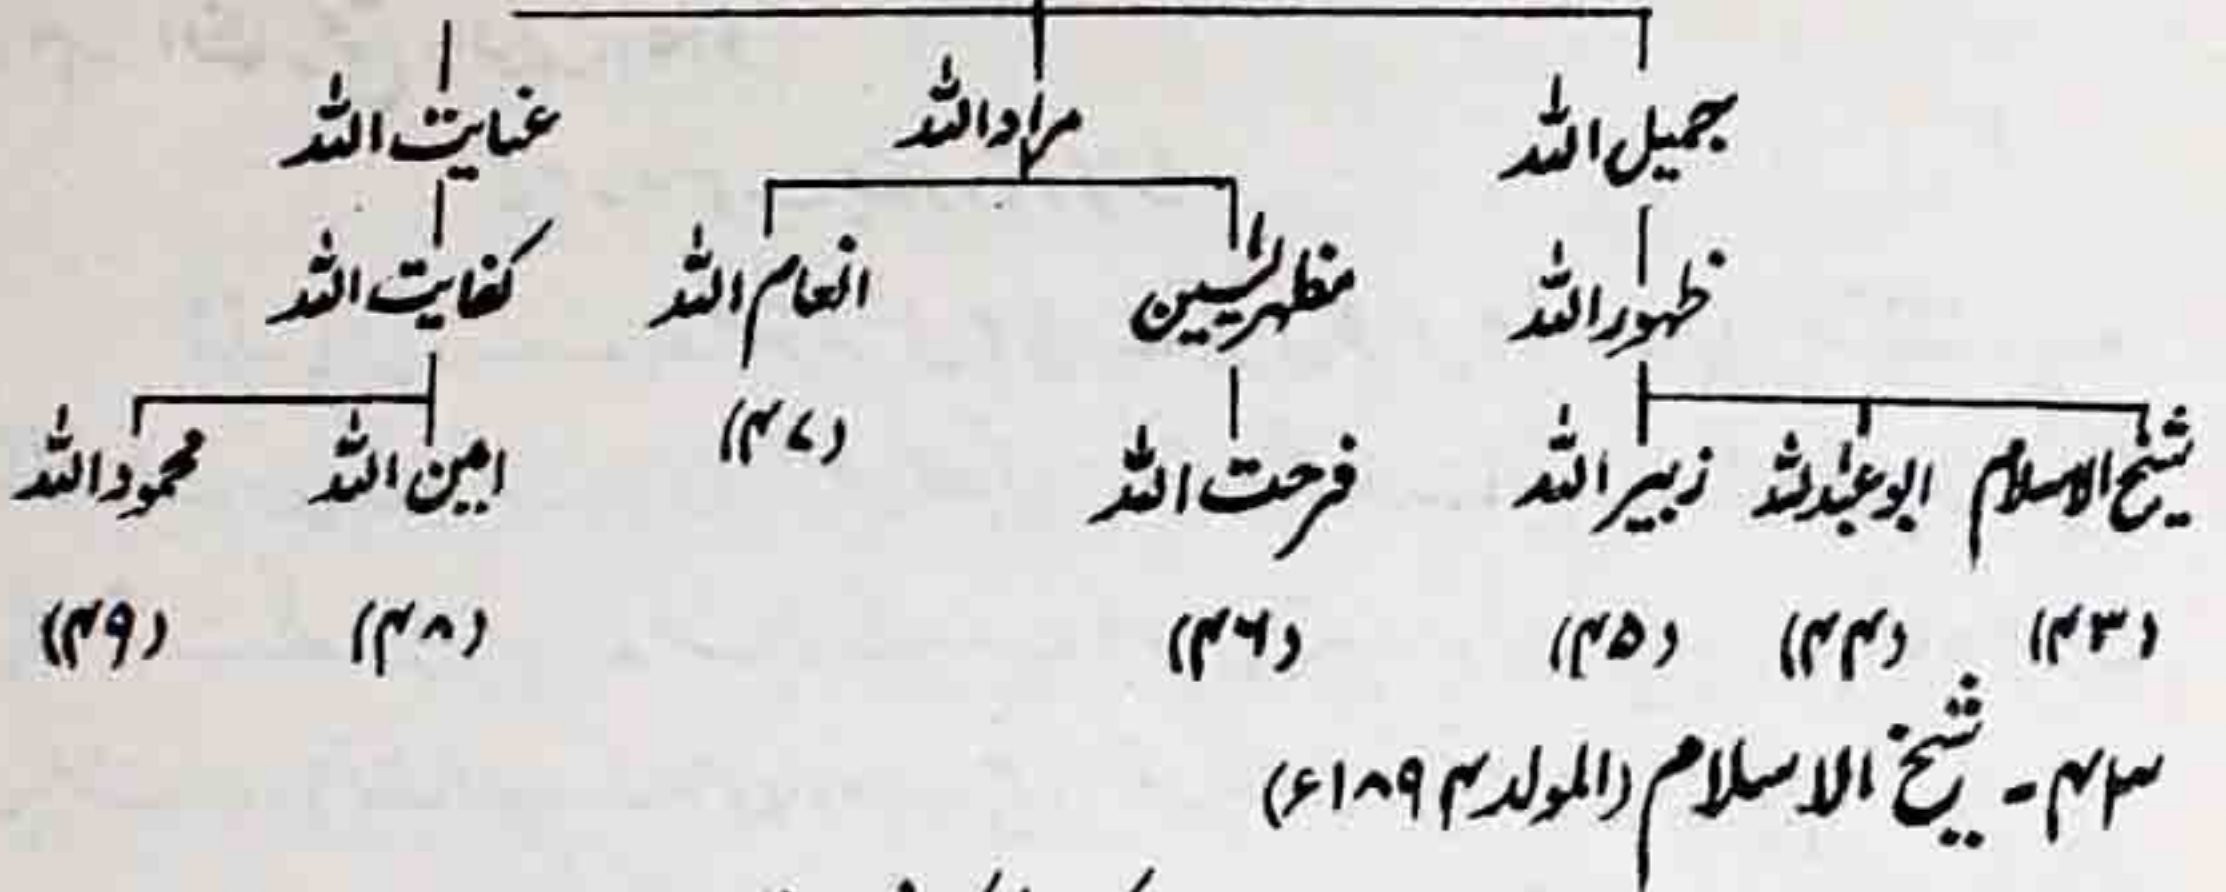 جمیل اللہ مراد اللہ عنایت اللہ
ظہور اللہ مظہر یٰسین انعام اللہ کفایت اللہ
شیخ الاسلام ابو عبداللہ زبیر اللہ فرحت اللہ (۴۷) امین اللہ محمود اللہ
(۴۳) (۴۴) (۴۵) (۴۶) (۴۸) (۴۹)
۴۳ - شیخ الاسلام (المولد ۱۸۹۴ء)